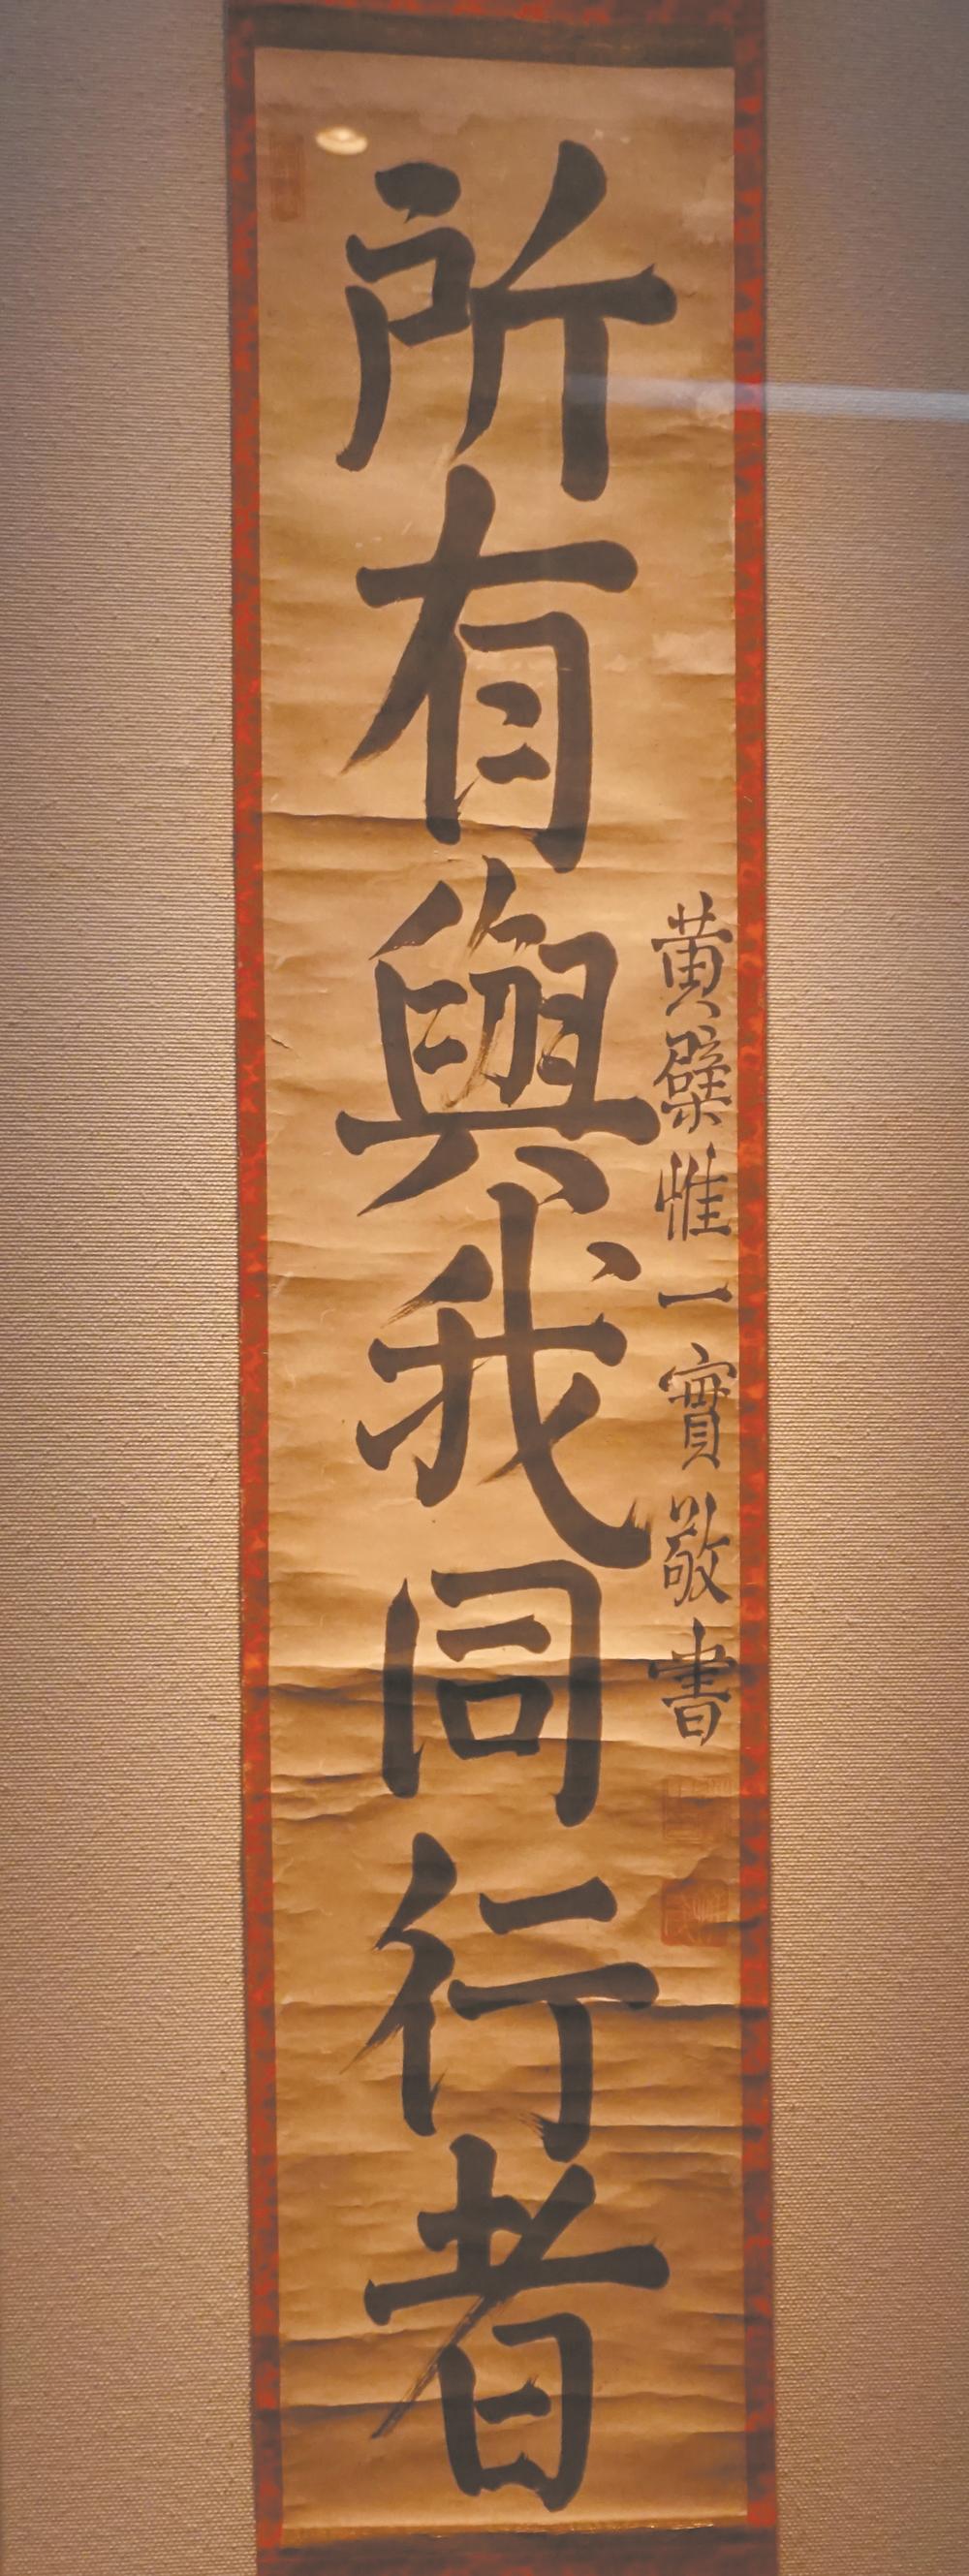 所有與我同行者
黄檗惟一實敬書